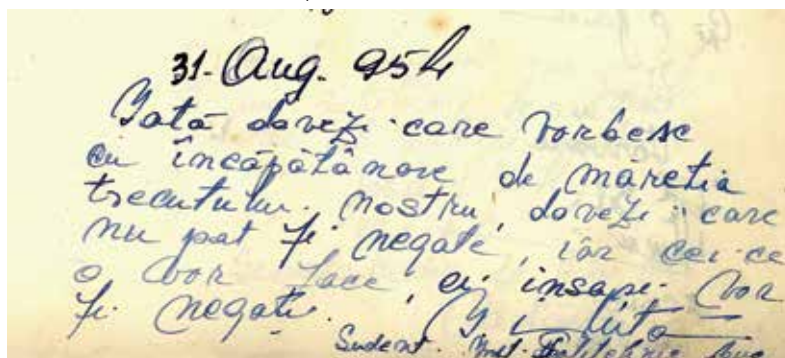 31. Aug. 954
Iată dovezi care vorbesc
cu încăpățânare de maretia
trecutului nostru, dovezi care
nu pot fi negate, iar cei ce
o vor face, ei insași vor
fi negati.
Sudent. Inst. Politehnic